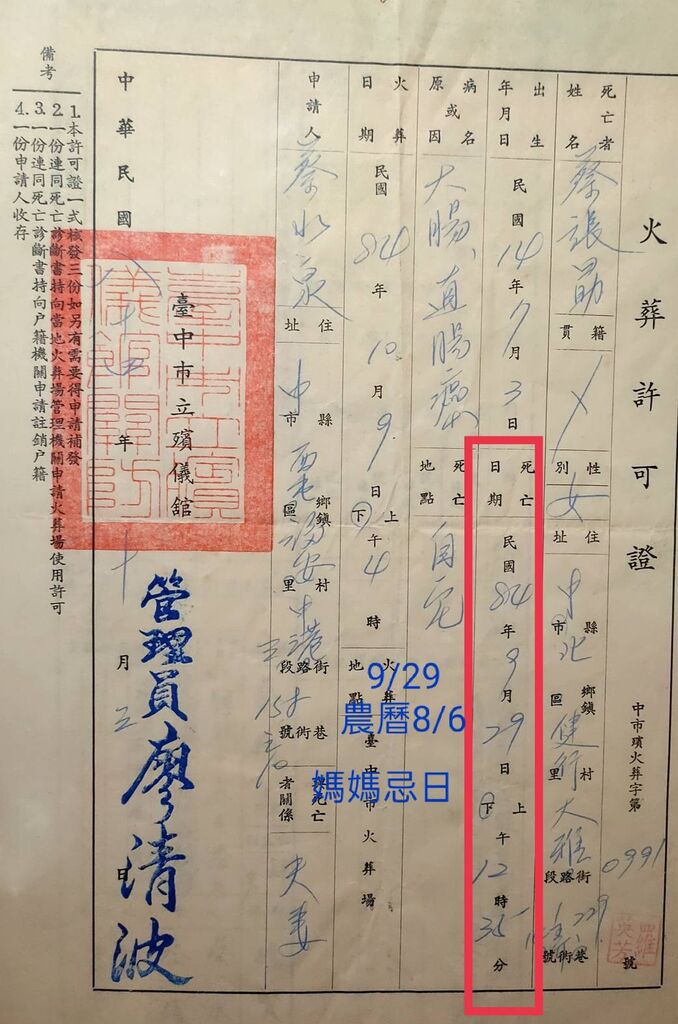 火葬許可證
中市殯火葬字第 0991 號
死亡者姓名 蔡張勗 籍貫 性別 女 住址 中市縣 北區鄉鎮 健行里村 大雅段路街 229號街巷
出生年月日 民國14年7月3日 死亡日期 民國84年9月29日上下午12時35分
病名或原因 大腸、直腸癌 死亡地點 自宅
火葬日期 民國84年10月9日上下午4時 火葬地點 臺中市火葬場
申請人 蔡水泉 住址 中市縣 西屯區鄉鎮 福安里村 中港段路街 號街巷 與死亡者關係 夫妻
9/29
農曆8/6
媽媽忌日
臺中市立殯儀館
管理員廖清波
中華民國八十四年十月三日
備考
1.本許可證一式核發三份如另有需要得申請補發
2.一份連同死亡診斷書持向當地火葬場管理機關申請火葬場使用許可
3.一份連同死亡診斷書持向户籍機關申請註銷户籍
4.一份申請人收存